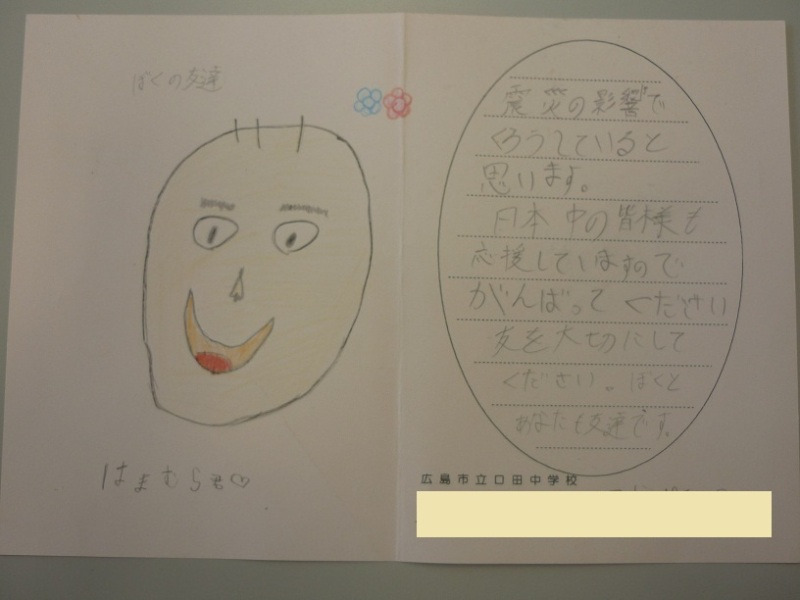 ぼくの友達
はまむら
震災の影響で
くろうしていると
思います。
日本中の皆様も
応援していますので
がんばってください
友を大切にして
ください。ぼくと
あなたも友達です。
広島市立口田中学校